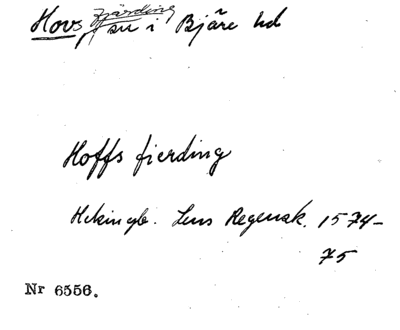 Hovs fjärding sn i Bjäre hd
Hoffs fierding
Lens Regensk. 1574-
75
Nr 6556.